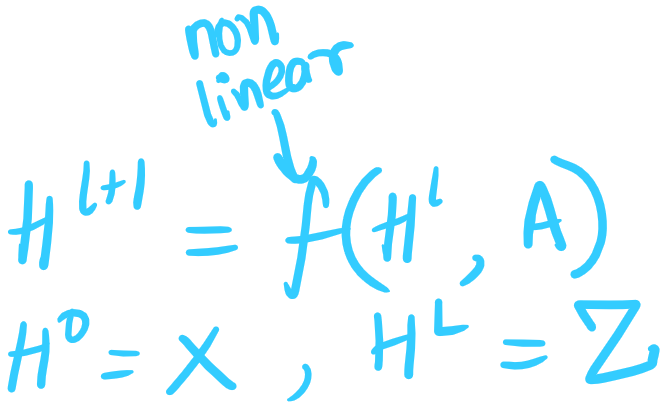 non
linear
H^{l+1} = f(H^l, A)
H^0 = X, H^L = Z